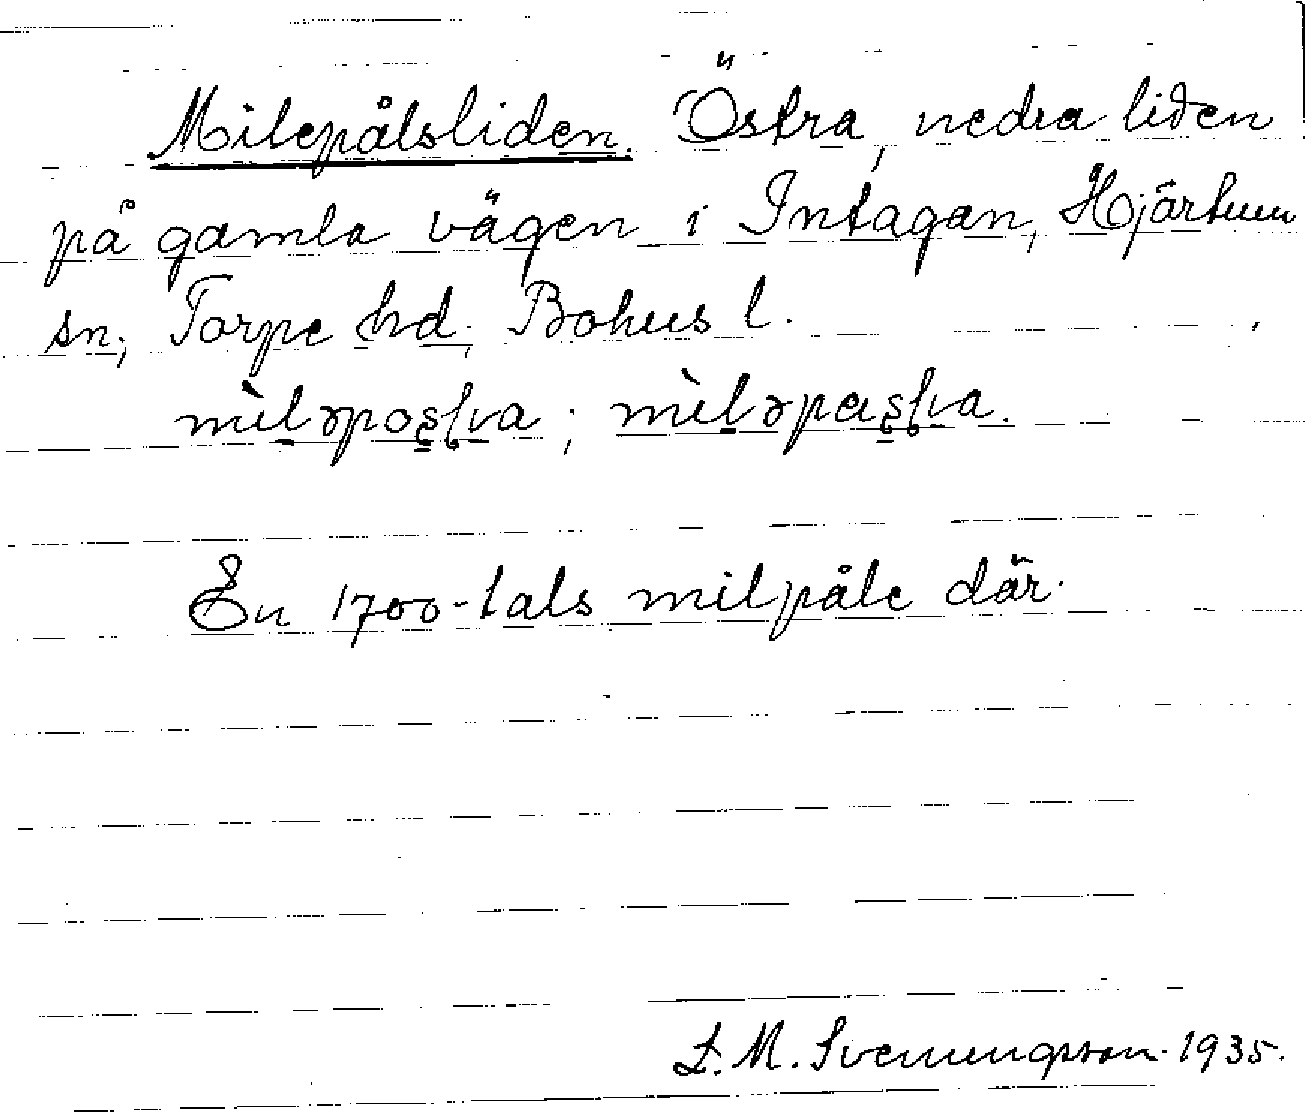 Milepålsliden. Östra, nedra liden
på gamla vägen i Intagan, Hjärtum
sn, Torpe hd, Bohus l.
En 1700-tals milpåle där.
L. M. Svenungsson. 1935.